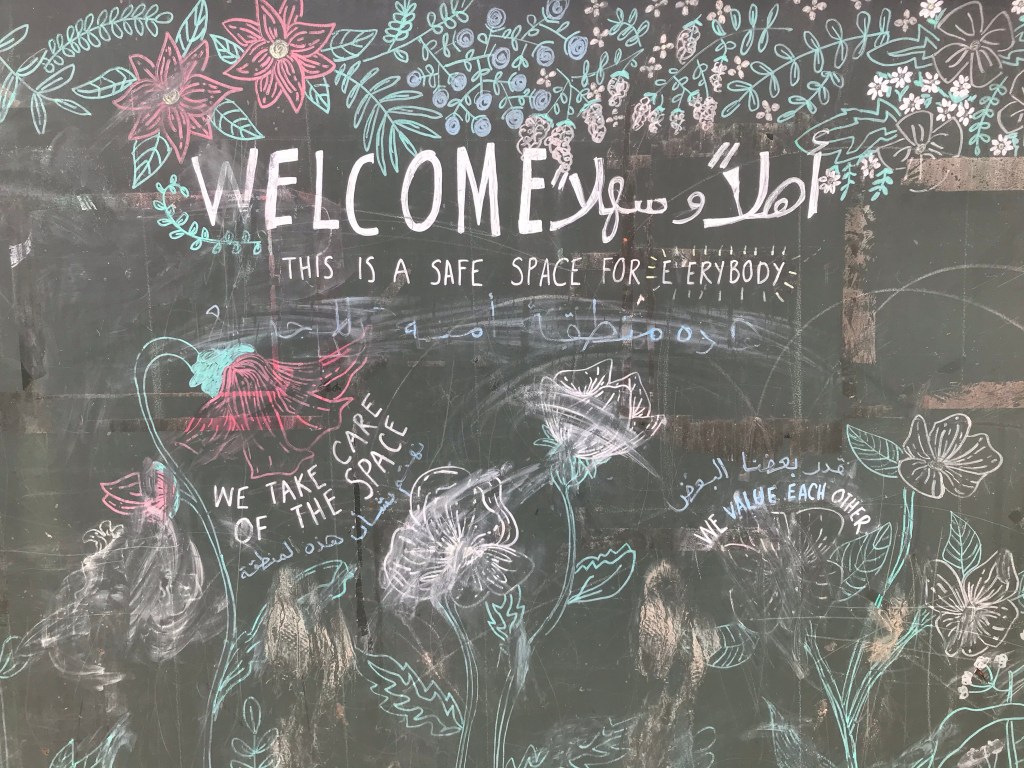 WELCOME أهلاً وسهلاً
THIS IS A SAFE SPACE FOR EVERYBODY
منطقة آمنة للجميع
WE TAKE CARE
OF THE SPACE
هذه المنطقة
نقدر بعضنا البعض
WE VALUE EACH OTHER